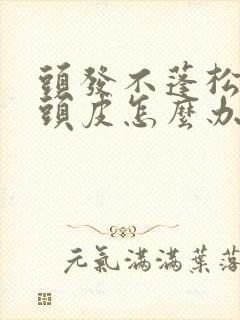 頭發不蓬松
頭皮怎麼办
元氣滿滿葉落